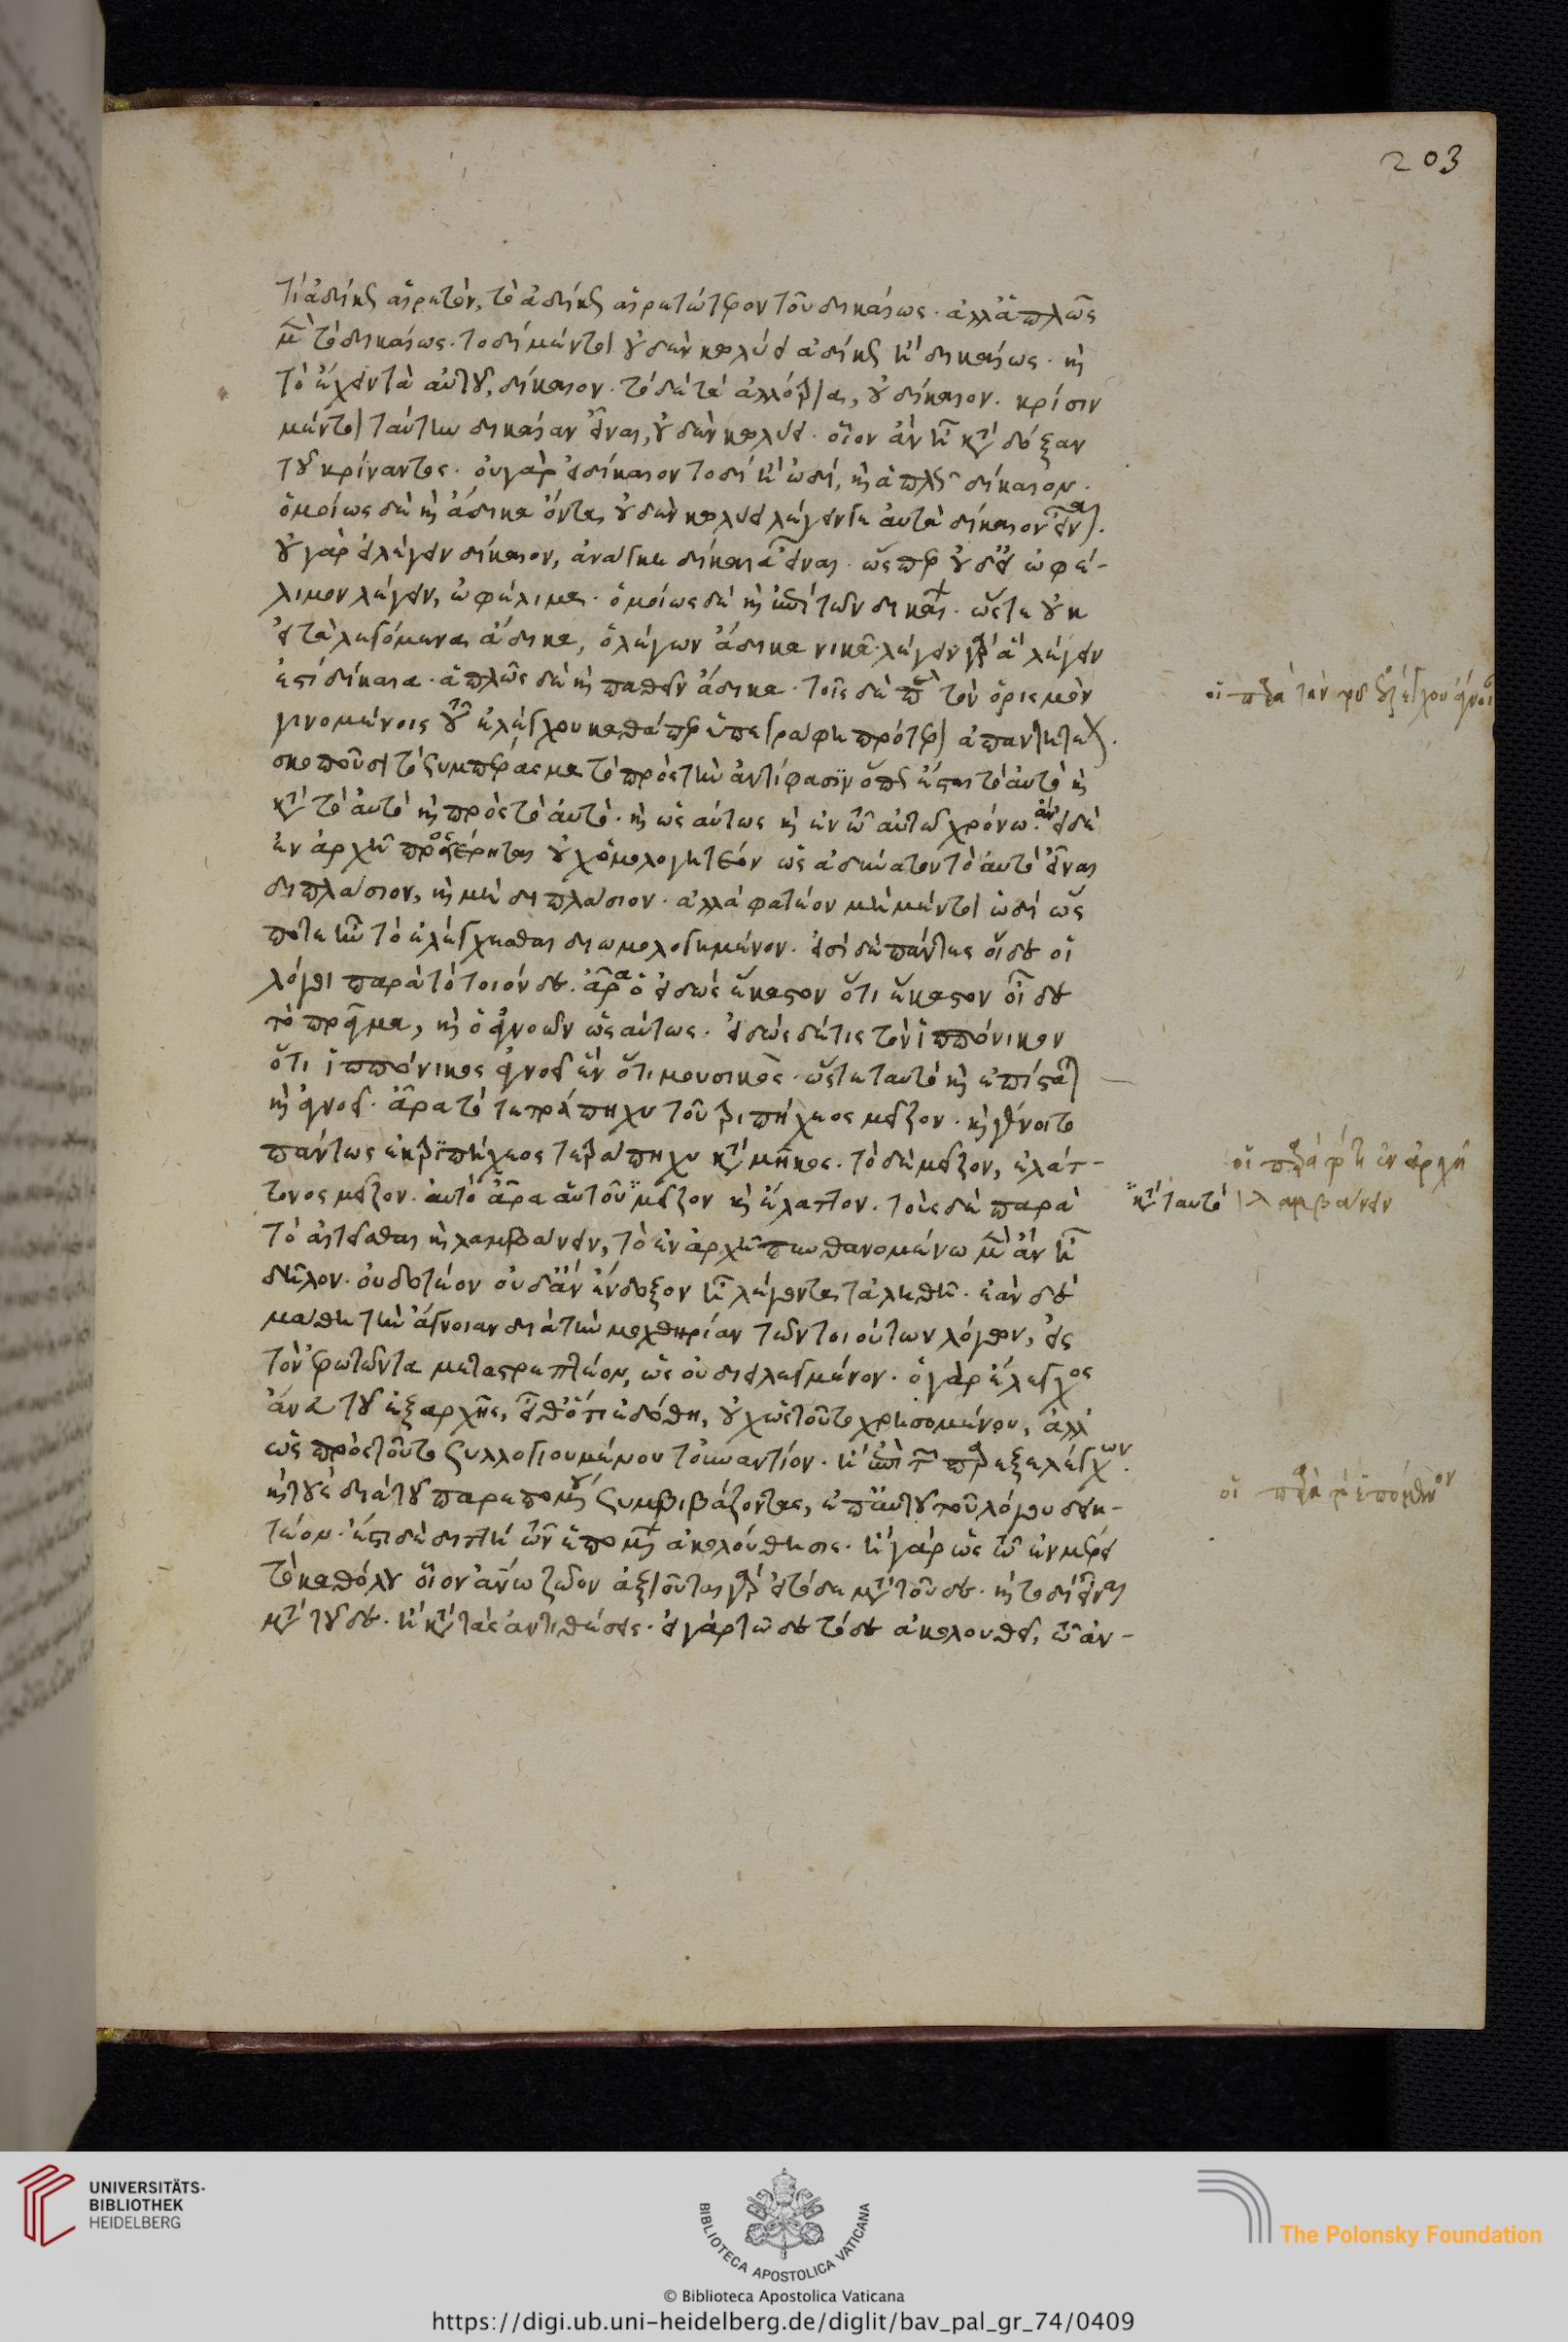 τι ἀδίκως αἱρετόν, τὸ ἀδίκως αἱρετώτερον τοῦ δικαίως· ἀλλ' ἁπλῶς
μὲν τὸ δικαίως· τοδὶ μέντοι οὐδὲν κωλύει ἀδίκως ἢ δικαίως· καὶ
τὸ ἔχειν τὰ αὐτοῦ, δίκαιον· τὸ δὲ τὰ ἀλλότρια, οὐ δίκαιον· κρίσιν
μέντοι ταύτην δικαίαν εἶναι, οὐδὲν κωλύει· οἷον ἂν ᾖ κατὰ δόξαν
τοῦ κρίναντος· οὐ γὰρ εἰ δίκαιον τοδὶ ἢ ὡδί, καὶ ἁπλῶς δίκαιον·
ὁμοίως δὲ καὶ ἄδικα ὄντα, οὐδὲν κωλύει λέγειν γε αὐτὰ δίκαιον εἶναι·
οὐ γὰρ εἰ λέγειν δίκαιον, ἀνάγκη δίκαια εἶναι· ὥσπερ οὐδ' εἰ ὠφέ-
λιμον λέγειν, ὠφέλιμα· ὁμοίως δὲ καὶ ἐπὶ τῶν δικαίων· ὥστε οὐκ
εἰ τὰ λεγόμενα ἄδικα, ὁ λέγων ἄδικα νικᾷ· λέγειν γὰρ ἃ λέγειν
ἐστὶ δίκαια· ἁπλῶς δὲ καὶ παθεῖν ἄδικα· τοῖς δὲ παρὰ τὸν ὁρισμὸν
γινομένοις τοῦ ἐλέγχου καθάπερ ὑπεγράφη πρότερον ἀπαντητέον·
σκοποῦσι τὸ συμπέρασμα τὸ πρὸς τὴν ἀντίφασιν ὅπως ἔσται τὸ αὐτὸ καὶ
κατὰ τὸ αὐτὸ καὶ πρὸς τὸ αὐτὸ· καὶ ὡσαύτως καὶ ἐν τῷ αὐτῷ χρόνῳ· ἂν εἰ δὲ
ἐν ἀρχῇ προσέρηται οὐχ ὁμολογητέον ὡς ἀδύνατον τὸ αὐτὸ εἶναι
διπλάσιον, καὶ μὴ διπλάσιον· ἀλλὰ φατέον μὴ μέντοι ὡδί ὥς
ποτε ἦν τὸ ἐλέγχεσθαι διωμολογημένον· εἰσὶ δὲ πάντες οἵδε οἱ
λόγοι παρὰ τὸ τοιόνδε· ἆρα ὁ εἰδὼς ἕκαστον ὅτι ἕκαστον οἶδε
τὸ πρᾶγμα, καὶ ὁ ἀγνοῶν ὡσαύτως· εἰδὼς δέ τις τὸν ἱππόνικον
ὅτι ἱππόνικος ἀγνοεῖ ἂν ὅτι μουσικὸς· ὥστε ταυτὸ καὶ ἐπίσταται
καὶ ἀγνοεῖ· ἆρα τὸ τετράπηχυ τοῦ τριπήχεος μεῖζον· καὶ γένοιτο
πάντως ἐκ τριπήχεος τετράπηχυ κατὰ μῆκος· τὸ δὲ μεῖζον, ἐλάτ-
τονος μεῖζον· αὐτὸ ἄρα αὑτοῦ μεῖζον καὶ ἔλαττον· τοὺς δὲ παρὰ
τὸ αἰτεῖσθαι καὶ λαμβάνειν, τὸ ἐν ἀρχῇ πυνθανομένῳ μὲν ἂν ᾖ
δῆλον· οὐ δοτέον οὐδ' ἂν ἔνδοξον ᾖ λέγοντα τἀληθῆ· ἐὰν δὲ
μάθῃ τὴν ἄγνοιαν διὰ τὴν μοχθηρίαν τῶν τοιούτων λόγων, εἰς
τὸν ἐρωτῶντα μεταστρεπτέον, ὡς οὐ διειλεγμένον· ὁ γὰρ ἔλεγχος
ἄνευ τοῦ ἐξαρχῆς, εἶθ' ὅτι ἐδόθη, οὐχ ὡς τοῦτο χρησομένου, ἀλλ'
ὡς πρὸς τοῦτο συλλογιουμένου τοὐναντίον· ἢ ἐπὶ τῶν παρεξελέγχων·
καὶ τοὺς διὰ τοῦ παρεπομένου συμβιβάζοντας, ἐπ' αὐτοῦ τοῦ λόγου δεικ-
τέον· ἔστι δὲ διττὴ ἡ τῶν ἑπομένων ἀκολούθησις· ἢ γὰρ ὡς τῷ ἐν μέρει
τὸ καθόλου οἷον ἀνθρώπῳ ζῷον ἀξιοῦται γὰρ εἰ τόδε μετὰ τοῦδε· καὶ τοδὶ εἶναι
μετὰ τοῦδε· ἢ κατὰ τὰς ἀντιθέσεις· εἰ γὰρ τῷδε τόδε ἀκολουθεῖ, τῷ ἀν-
203
οἱ παρὰ τὴν τοῦ ἐλέγχου ἄγνοιαν
οἱ παρὰ τὸ τὸ ἐν ἀρχῇ
λαμβάνειν
κατὰ ταυτὸ
οἱ παρὰ τὸ ἑπόμενον
UNIVERSITÄTS-
BIBLIOTHEK
HEIDELBERG
BIBLIOTECA APOSTOLICA VATICANA
© Biblioteca Apostolica Vaticana
The Polonsky Foundation
https://digi.ub.uni-heidelberg.de/diglit/bav_pal_gr_74/0409